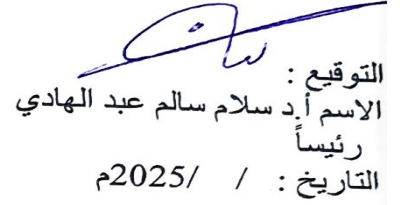 التوقيع :
الاسم أ.د سلام سالم عبد الهادي
رئيساً
التاريخ : / /2025م